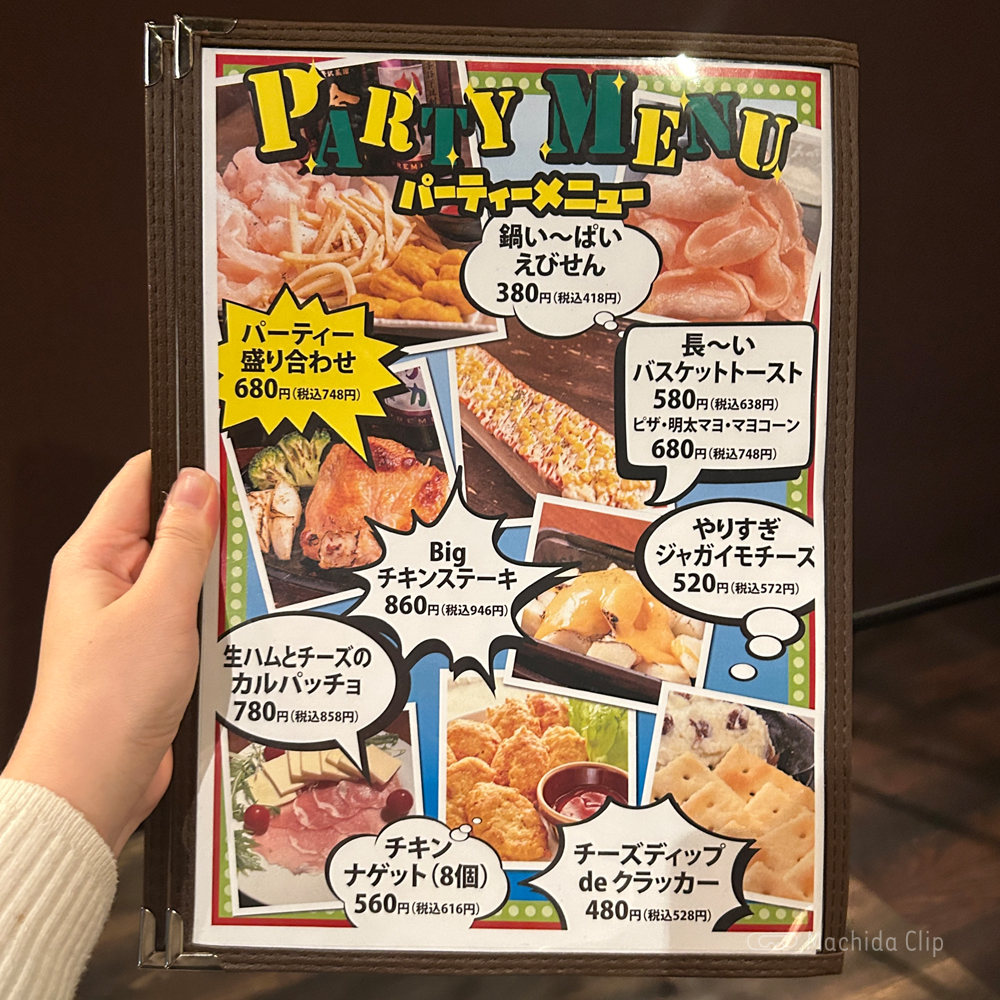 PARTY MENU
パーティーメニュー
鍋い〜ぱい
えびせん
380円(税込418円)
パーティー
盛り合わせ
680円(税込748円)
長〜い
バスケットトースト
580円(税込638円)
ピザ・明太マヨ・マヨコーン
680円(税込748円)
やりすぎ
ジャガイモチーズ
520円(税込572円)
Big
チキンステーキ
860円(税込946円)
生ハムとチーズの
カルパッチョ
780円(税込858円)
チキン
ナゲット(8個)
560円(税込616円)
チーズディップ
de クラッカー
480円(税込528円)
Machida Clip